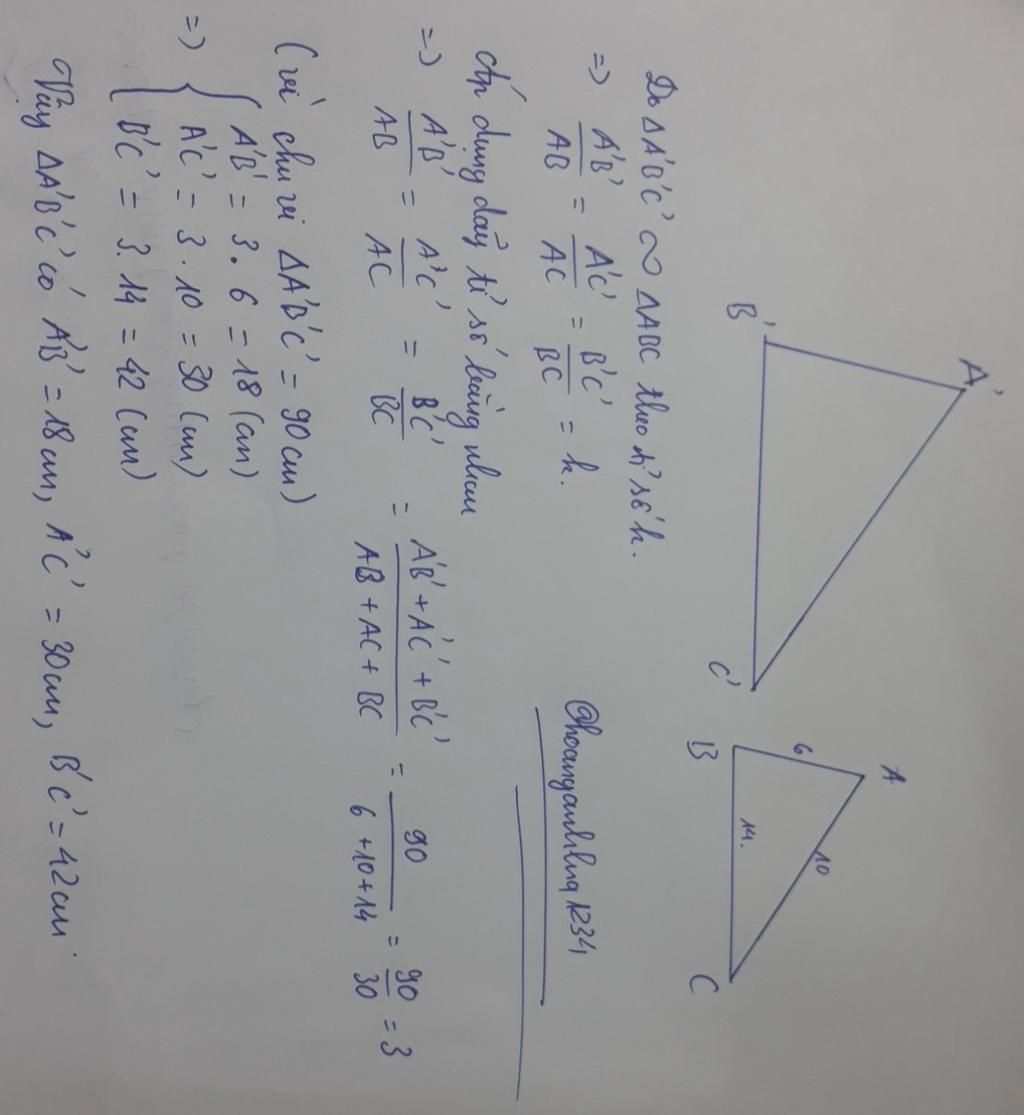 A'
B'
C'
A
6
10
B
14.
C
Do ΔA'B'C' ∽ ΔABC theo tỉ số k.
=> A'B'/AB = A'C'/AC = B'C'/BC = k.
@hoanganhlhq1234
Áp dụng dãy tỉ số bằng nhau
=> A'B'/AB = A'C'/AC = B'C'/BC = A'B'+A'C'+B'C'/AB+AC+BC = 90/6+10+14 = 90/30 = 3
(vì chu vi ΔA'B'C' = 90cm)
=> { A'B' = 3.6 = 18 (cm)
A'C' = 3.10 = 30 (cm)
B'C' = 3.14 = 42 (cm)
Vậy ΔA'B'C' có A'B' = 18cm, A'C' = 30cm, B'C' = 42cm.